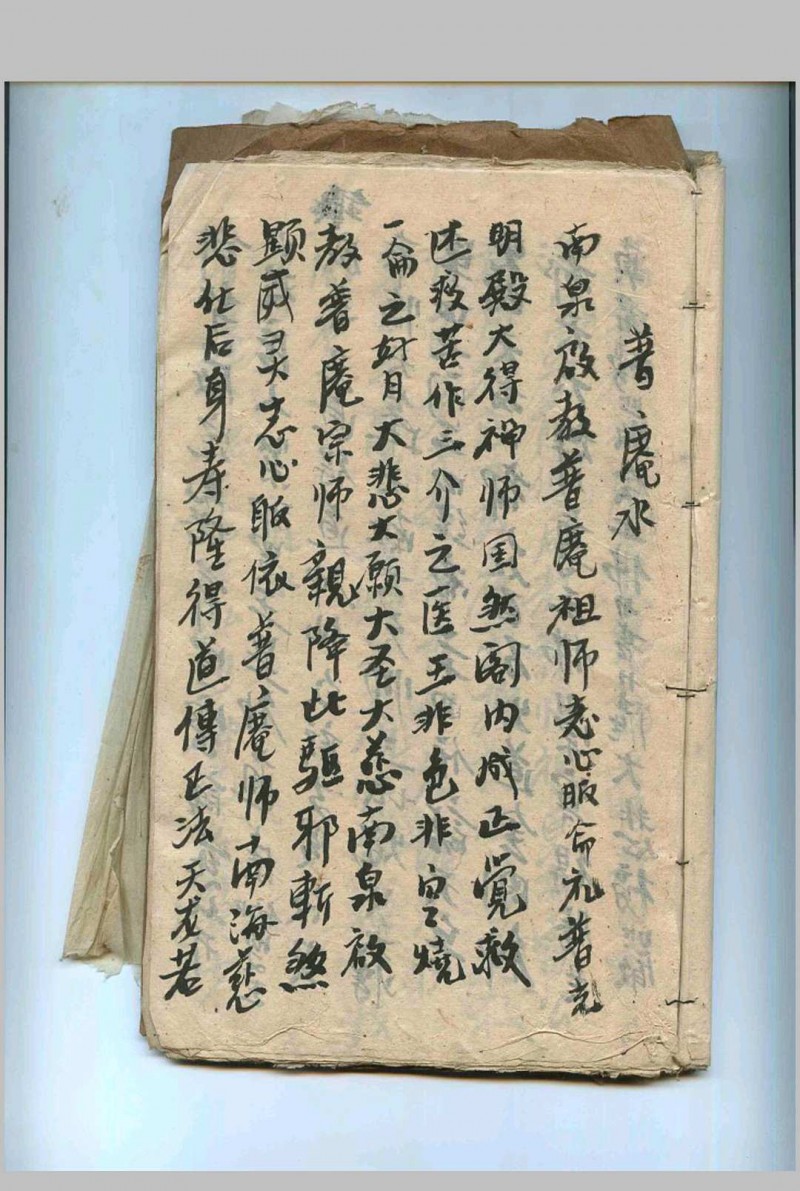 普庵水
南泉啟教普庵祖师志心皈命礼普光
明殿大得禅师固然阁内成正觉救
迷救苦作三介之医王非色非空烧
一侖之好月大悲大願大圣大慈南泉啟
教普庵宗师親降此驅邪斬煞
顕威灵志心皈依普庵师南海慈
悲化后身寿隆得道傳正法天龙若